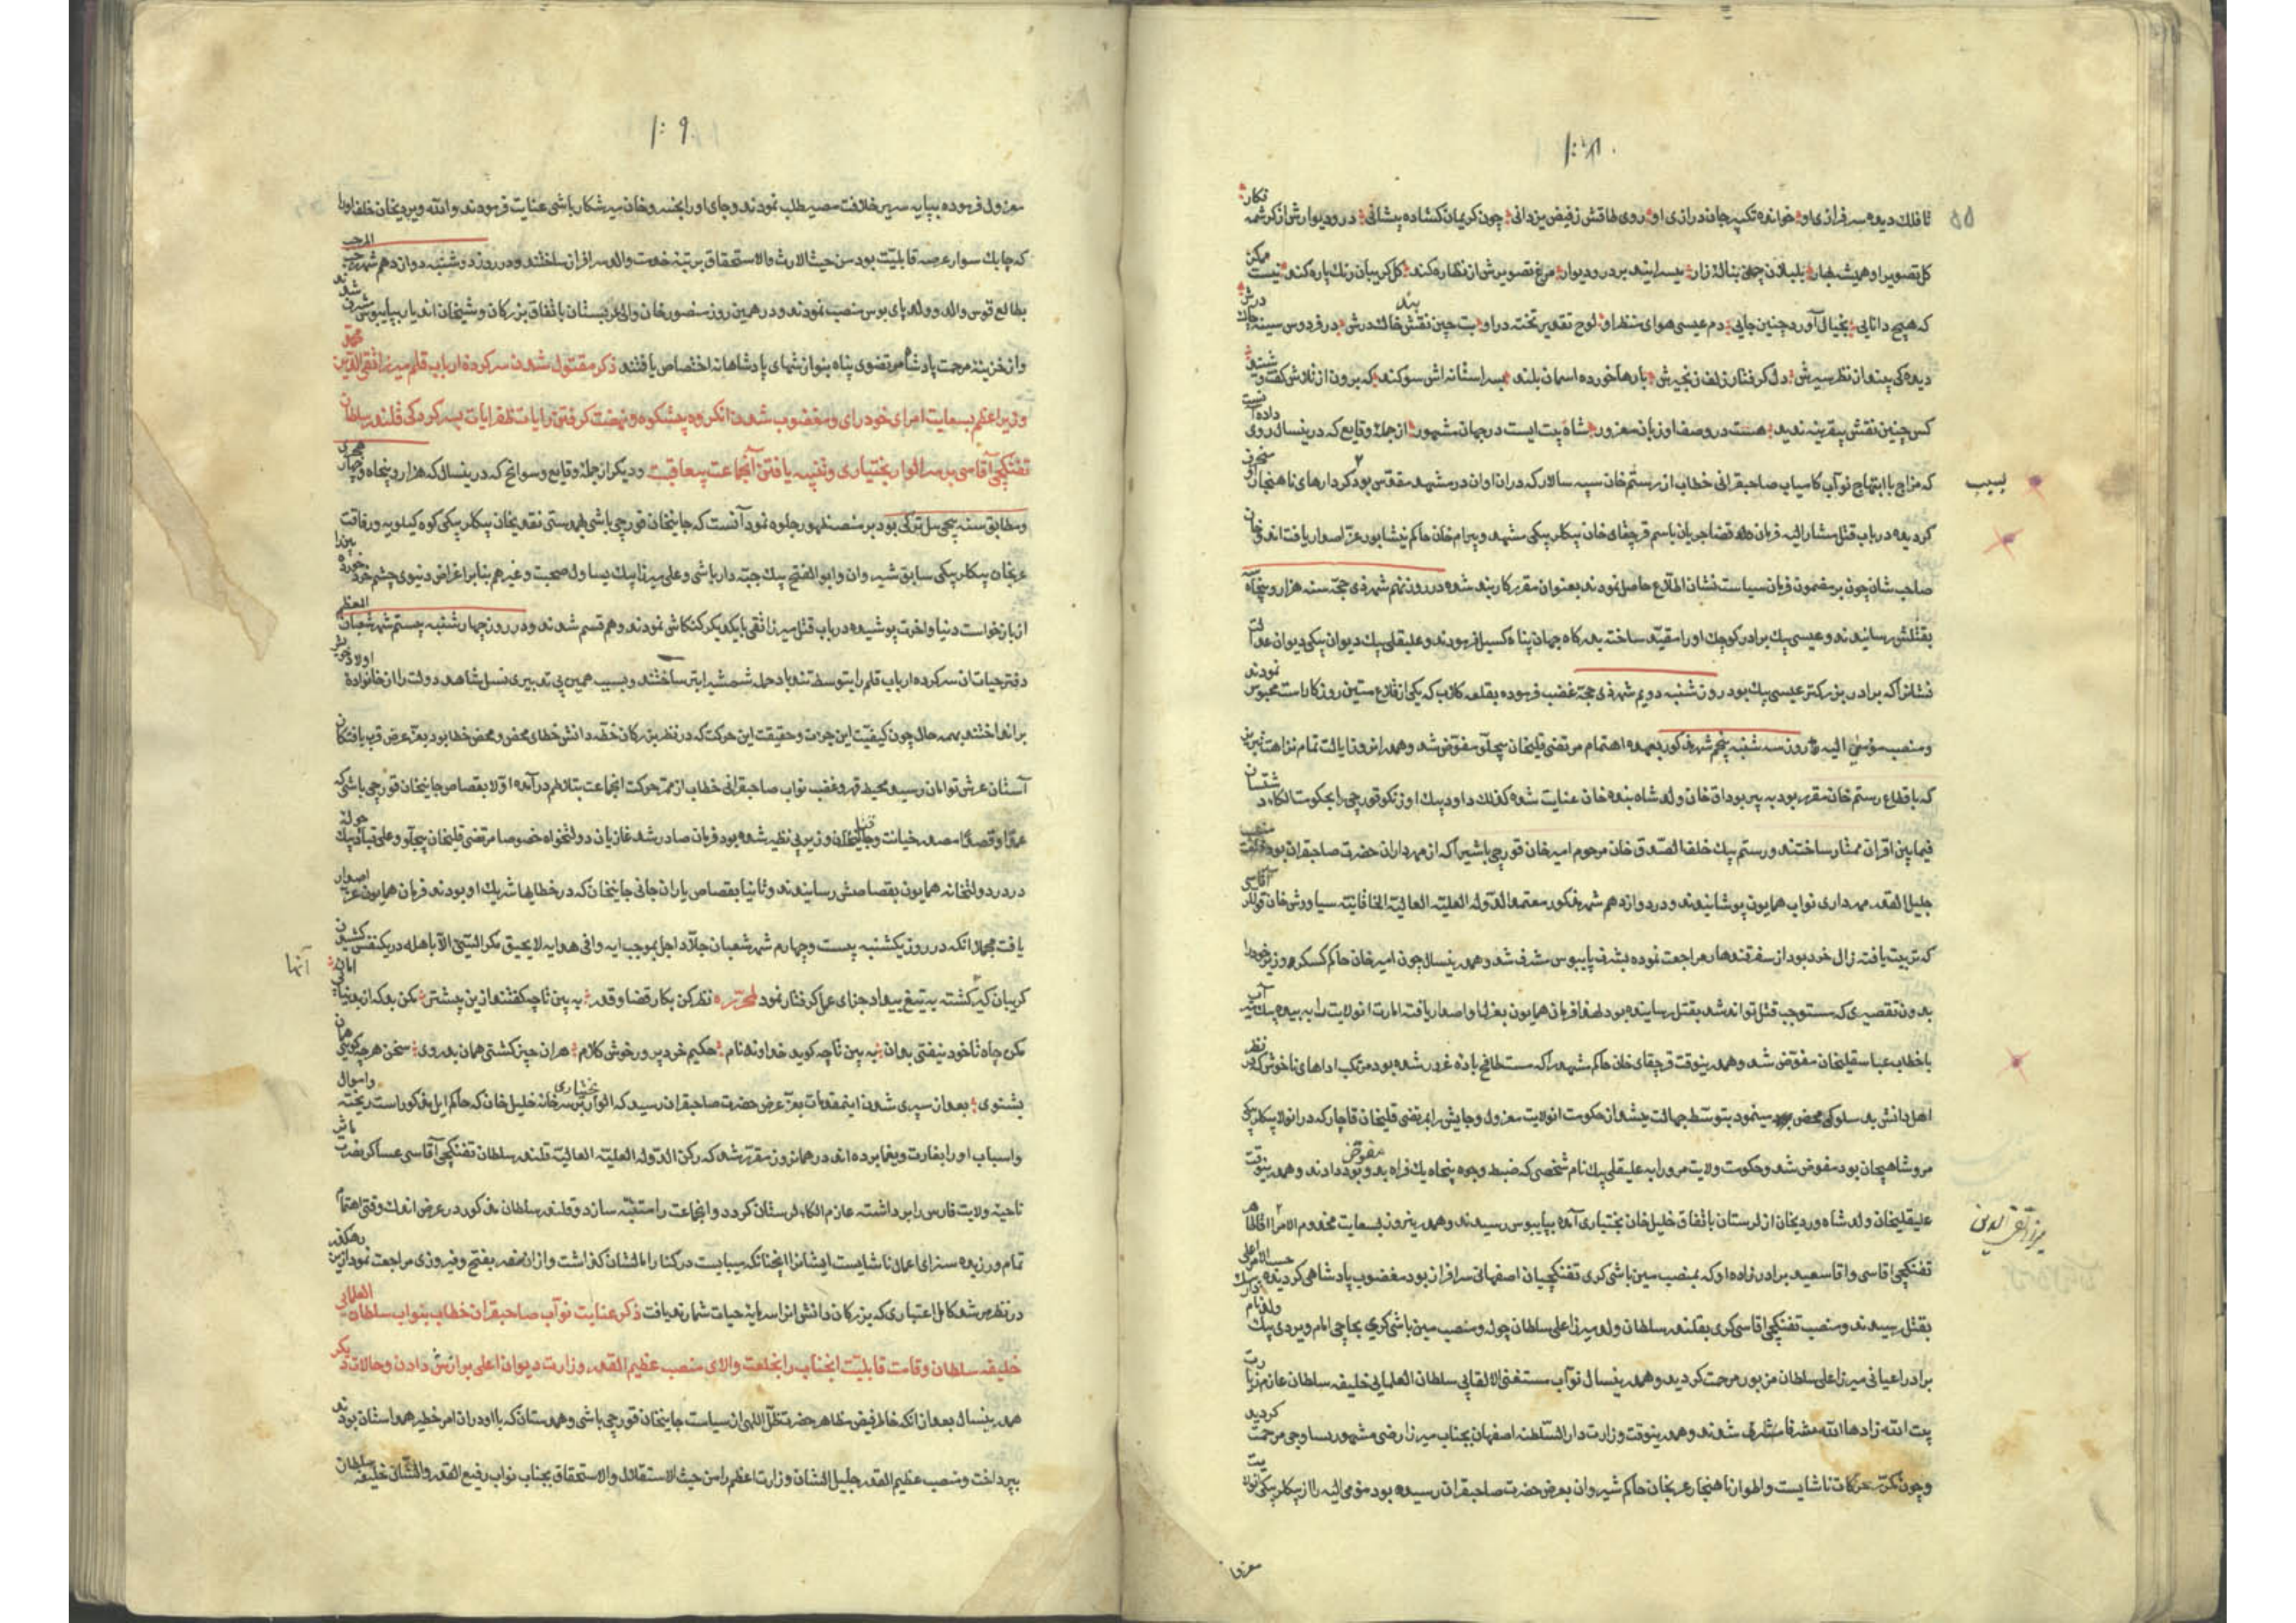 تا فلک دیده سرفرازی او خوانده تکبیر جان درازی او روی طاقش ز فیض یزدانی چون کریمان کشاده پیشانی در و دیوارش از کرشمه نکار
کل تصویر او همیشه بهار بلبلان چمن بناله زار بسرایند بر در و دیوار مرغ تصویرش ار نظاره کند کل کریبان رنک پاره کند نیست ممکن
که هیچ دانایی بخیال آورد چنین جایی دم عیسی هوای منظر او لوح تقدیر تخته در او بت چین نقش خاک درش در فردوس سینه چاک درش
دیده کی بیند از نظر سیرش دل کرفتار زلف زنجیرش بارها خورده اسمان بلند بسر استانه اش سوکند که برون از تلاش کفت و شنید
کس چنین نقش بیقرینه ندید هست در وصف او زبان معذور شاه بیت ایست در جهان مشهور از جمله وقایع که درینسال روی داده آنست
که مزاج با ابتهاج نواب کامیاب صاحبقرانی خطاب از رستم خان سپه سالار که در ان اوان در مشهد مقدس بود کردارهای ناهنجار او منحرف
بسبب
کردیده در باب قتل مشار الیه فرمان قضا جریان باسم قرچقای خان بیکلربیکی مشهد و بیرام خان حاکم نیشابور عز اصدار یافت اندو خان
صاحب شان چون بر مضمون فرمان سیاست نشان اطلاع حاصل نمودند بعنوان مقرر کاربند شده در روز نهم شهر ذی حجه سنه هزار و پنجاه
بقتلش رسانیدند و عیسی بیک برادر کوچک او را مقید ساخته بدرکاه جهان پناه کسیل فرمودند و علیقلی بیک دیوان بیکی دیوان عدالت
نشانرا که برادر بزرکتر عیسی بیک بود روز شنبه دویم شهر ذی حجه غضب فرموده بقلعه کلاب که یکی از قلاع متین روزکار است محبوس نمودند
و منصب مومی الیه روز سه شنبه پنجم شهر مذکور بعهده اهتمام مرتضی قلیخان بیجلو مفوض شد و همدر انروز ایالت تمام نزاهت تبریز
که باقطاع رستم خان مقرر بود به پیر بوداق خان ولد شاه بنده خان عنایت شده کذلک داود بیک اوزنکو قورچی را بحکومت الکاء دشتستان
فیمابین اقران ممتاز ساختند و رستم بیک خلف الصدق خان مرحوم امیر خان قورچی باشی را که از مهرداران حضرت صاحبقران بود بمنصب
جلیل القدر مهرداری نواب همایون پوشانیدند و در دوازدهم شهر مذکور معتمد الدوله العلیه العالیه الخاقانیه سیاوش خان قوللر آقاسی
که تربیت یافته زال خرد بود از سفر قندهار مراجعت نموده بشرف پایبوس مشرف شد و همدرینسال چون امیر خان حاکم کسکر وزیر خود را
بدون تقصیری که مستوجب قتل تواند شد بقتل رسانیده بود لهذا فرمان همایون بعزل او اصدار یافت امارت انولایت را به بیک
باخطاب عباسقلیخان مفوض شد و همدرینوقت قرچقای خان حاکم مشهد را که مست طافح باده غرور شده بود مرتکب اداهای ناخوش که در نظر
اهل دانش بد سلوکی محض مینمود بتوسط جهالت پیشه از حکومت انولایت معزول و جایش را بمرتضی قلیخان قاجار که در انولا بیکلربیکی
مرو شاهیجان بود مفوض شد و حکومت ولایت مرو را به علیقلی بیک نام شخصی که ضبط وجوه پنجاه یک قراه بدو مفوض بود دادند و همدرینوقت
علیقلیخان ولد شاه ورديخان از لرستان باتفاق خلیل خان بختیاری آمده بپایبوس رسیدند و همدرینروز بسعایت مخدوم الامرا اقا طاهر
میرزا تقی الدین
تفنکچی اقاسی و اقا سعید برادرزاده او که بمنصب مین باشی کری تفنکچیان اصفهانی سرافراز بود مغضوب پادشاهی کردیده حسب الامر اعلی
بقتل رسیدند و منصب تفنکچی اقاسی کری بقلندر سلطان ولد میرزا علی سلطان چوله و منصب مین باشی کری بحاجی امام ویردی بیک
برادر اعیانی میرزا علی سلطان مزبور مرحمت کردید و همدرینسال نواب مستغنی الالقابی سلطان العلمایی خلیفه سلطان عازم زیارت
بیت الله زادها الله شرفا شدند و همدرینوقت وزارت دار السلطنه اصفهان بجناب میرزا رضی مشهور بساوجی مرحمت کردید
و چون مکرر حرکات ناشایست و اطوار ناهنجار عربخان حاکم شیروان بعرض حضرت صاحبقران رسیده بود مومی الیه را از بیکلربیکی
معزول
معزول فرموده بپایه سریر خلافت مصیر طلب نمودند و جای او را بخسرو خان میر شکار باشی عنایت فرمودند و الله ویردیخان خلف او را
که چابک سوار عرصه قابلیت بود من حیث الارث والاستحقاق برتبه خدمت والد سرافراز ساختند و در روز دوشنبه دوازدهم شهر رجب المرجب
بطالع قوس والد و ولد پای بوس منصب نمودند و در همین روز منصور خان والی عربستان باتفاق بزرکان و شیخان اندیار بپایبوس مشرف شدند
و از خزینه مرحمت پادشاه مرتضوی پناه بنوازشهای پادشاهانه اختصاص یافتند ذکر مقتول شدن سر کرده ارباب قلم میرزا تقی الدین محمد
وزیر اعظم بسعایت امرای خود رای و مغضوب شدن انکروه پشکوه و نهضت کرفتن رایات ظفر ایات بسر کردکی قلندر سلطان
تفنکچی آقاسی بر سر الوار بختیاری و تنبیه یافتن آنجماعت بیعاقبت و دیکر از جمله وقایع و سوانح که درینسال که هزار و پنجاه و چهار هجری
و مطابق سنه پیچی ئیل ترکی بود بر منصه ظهور جلوه نمود آنست که جانیخان قورچی باشی بهمدستی نقدیخان بیکلربیکی کوه کیلویه و رفاقت
عربخان بیکلربیکی سابق شیروان و ابو الفتح بیک جبه دار باشی و علی میرزا بیک یساول صحبت و غیرهم بنابر اغراض دنیوی چشم خرد
از بازخواست دنیا و اخرت پوشیده در باب قتل میرزا تقی با یکدیکر کنکاش نمودند و هم قسم شدند و در روز چهارشنبه بیستم شهر شعبان المعظم
دفتر حیات ان سر کرده ارباب قلم را بتوسط تندباد حمله شمشیر ابتر ساختند و بسبب همین بی تدبیری نسل شاهد دولت را از خانواده اولاد خویش
برانداختند بهمه حال چون کیفیت این جرات و حقیقت این حرکت که در نظر بزرکان خفه دانش خطای محض و محض خطا بود بعز عرض قرب یافتکان
آستان عرش توامان رسید محیط قهر و غضب نواب صاحبقرانی خطاب از ممر حرکت انجماعت بتلاطم درآمده اولا بقصاص جانیخان قورچی باشی که
عمدا و قصدا مصدر خیانت و قتل وزیر بی نظیر شده بود فرمان صادر شد غازیان دولتخواه خصوصا مرتضی قلیخان بیجلو و علی قباد بیک چوله
در در دولتخانه همایون بقصاصش رسانیدند و ثانیا بقصاص یاران جانی جانیخان که در خطایا شریک او بودند فرمان همایون عز اصدار
یافت مجملا انکه در روز یکشنبه بیست و چهارم شهر شعبان جلاد اجل بموجب ایه وافی هدایه لا یحیق مکر السیئ الا باهله در یکنفس
آنها
کریبان کیر کشته به تیغ بیداد جزای عمل کرفتار نمود لمحرره نظر کن بکار قضا و قدر ببین تا چه کفتند ازین پیشتر مکن بد که از بد نیابی امان
مکن چاه تا خود نیفتی بدان ببین تا چه کوید خداوند نام حکیم خرد پرور خوش کلام هر ان چیز کشتی همان بدروی سخن هرچه کویی همان
بشنوی بعد از سپری شدن اینمقدمات بعز عرض حضرت صاحبقران رسید که الوار بختیاری بر سر خانه خلیل خان که حاکم ایل مذکور است ریخته و اموال
و اسباب او را بغارت و یغما برده اند در همانروز مقرر شد که رکن الدوله العلیه العالیه قلندر سلطان تفنکچی آقاسی عساکر نصرت
ناحیه ولایت فارس را برداشته عازم الکاء لرستان کردد و انجماعت را متنبه سازد و قلندر سلطان مذکور در عرض اندک وقتی اهتمام
تمام ورزیده سزای اعمال ناشایست ایشانرا انچنانکه میبایست در کنار امالشان کذاشت و از ان سفر بفتح و فیروزی مراجعت نمود
در نظر مرشد کامل اعتباری که بزرکان دانش انرا سرمایه حیات شمارند یافت ذکر عنایت نواب صاحبقران خطاب بنواب سلطان العلمایی
خلیفه سلطان و قامت قابلیت انجناب را بخلعت والای منصب عظیم القدر وزارت دیوان اعلی برازش دادن و حالات دیکر
همدرینسال بعد از انکه خاطر فیض مظاهر حضرت ظل اللهی از سیاست جانیخان قورچی باشی و همدستان که با او در ان امر خطیر همداستان بودند
بپرداخت و منصب عظیم القدر جلیل الشان وزارت اعظم را من حیث الاستقلال والاستحقاق بجناب نواب رفیع القدر والشان خلیفه سلطان